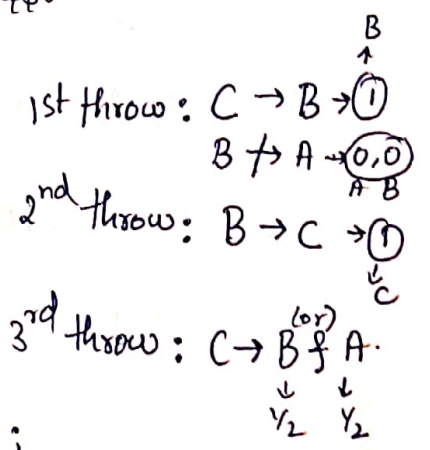 B
↑
1st throw: C → B → 1
B ↛ A → 0,0
A B
2nd throw: B → C → 1
↓
C
(or)
3rd throw: C → B & A.
↓ ↓
1/2 1/2